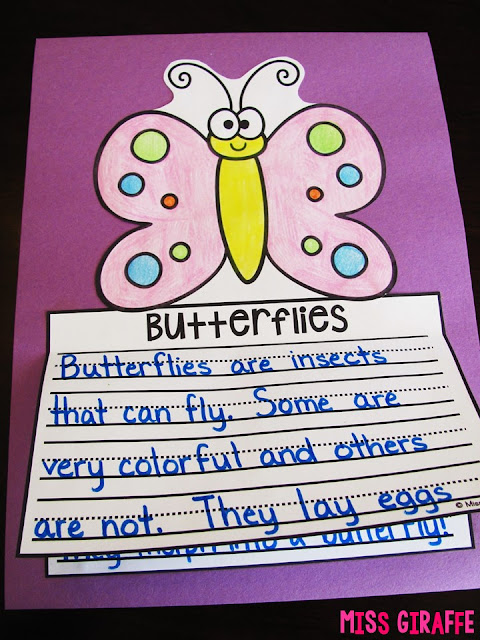 Butterflies
Butterflies are insects
that can fly. Some are
very colorful and others
are not. They lay eggs
into a butterfly!
MISS GIRAFFE